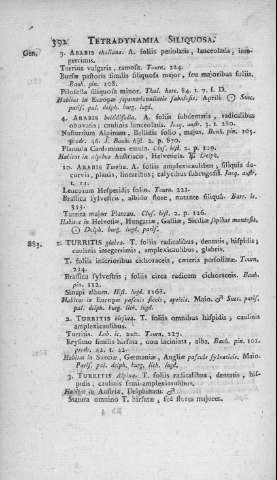 392 TETRADYNAMIA SILIQUOSA.
Gen. 3. ARABIS thaliana. A. foliis petiolatis, lanceolatis, integerrimis.
Turritis vulgaris, ramosa. Tourn. 224.
Bursæ pastoris similis siliquosa major, seu majoribus foliis. Bauh. pin. 108.
Pilosella siliquosa minor. Thal. harc. 84. t. 7. f. D.
Habitat in Europæ septentrionalioris sabulosis. Aprili. ☉ Suec. paris. pal. delph. burg. lugd.
4. ARABIS bellidifolia. A. foliis subdentatis, radicalibus obovatis; caulinis lanceolatis. Jacq. austr. 3. t. 280.
Nasturtium Alpinum, Bellidis folio, majus. Bauh. pin. 105. prodr. 46. J. Bauh. hist. 2. p. 870.
Plantula Cardamines emula. Cluf. hist. 2. p. 129.
Habitat in alpibus Austriacis, Helveticis. Delph.
10. ARABIS Turrita. A. foliis amplexicaulibus; siliquis decurvis, planis, linearibus; calycibus subrugosis. Jacq. austr. t. 11.
Leucoium Hesperidis folio. Tourn. 221.
Brassica sylvestris, albido flore, nutante siliqua. Barr. Ic. 353.
Turrita major Plateau. Cluf. hist. 2. p. 126.
Habitat in Helvetiæ, Hungariæ, Galliæ, Siciliæ
☉ Delph. burg. lugd. paris.
883. 1. TURRITIS glabra. T. foliis radicalibus, dentatis, hispidis; caulinis integerrimis, amplexicaulibus, glabris.
T. foliis inferioribus cichoraceis, cæteris perfoliatæ. Tourn. 224.
Brassica sylvestris; foliis circa radicem cichoraceis. Bauh. pin. 112.
Sinapi album. Hist. lugd. 1168.
Habitat in Europæ pascuis siccis, apricis. Maio. ♂ Suec. paris. pal. delph. burg. lith. lugd.
2. TURRITIS hirsuta. T. foliis omnibus hispidis; caulinis amplexicaulibus.
Turritis. Lob. ic. 220. Tourn. 227.
Erysimo similis hirsuta, non laciniata, alba. Bauh. pin. 101. prodr. 42. t. 42.
Habitat in Sueciæ, Germaniæ, Angliæ pascuis sylvaticis. Maio. Paris. pal. delph. burg. lith. lugd.
3. TURRITIS Alpina. T. foliis radicalibus, dentatis, hispidis; caulinis semi-amplexicaulibus.
Habitat in Austria, Delphinatu. ♂
Statura omnino T. hirsutæ; sed flores majores.